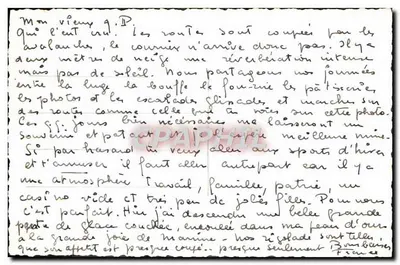 Mon vieux g. II
Qui l'eut cru. Les routes sont coupées par les
avalanches, le courrier n'arrive donc pas. Il y a
deux mètres de neige une réverbération intense
mais pas de soleil. Nous partageons nos journées
entre la luge la bouffe le fou-rire les pâtisseries
les photos et les escalades glissades et marches sur
des routes comme celle que tu vois sur cette photo.
Ces jours bien nécessaires me laisseront un
souvenir et meilleure mine.
Si par hasard tu veux aller aux sports d'hiver
et t'amuser il faut aller autrepart car il y a
une atmosphère Travail, famille, patrie, un
casino vide et très peu de jolies filles. Pour nous
c'est parfait. Hier j'ai descendu une belle grande
piste de glace couchée, enroulée dans ma peau d'ours
à la grande joie de maman. Nos rigolades sont telles
que son appétit est presque coupé.. presque seulement Bons baisers
France